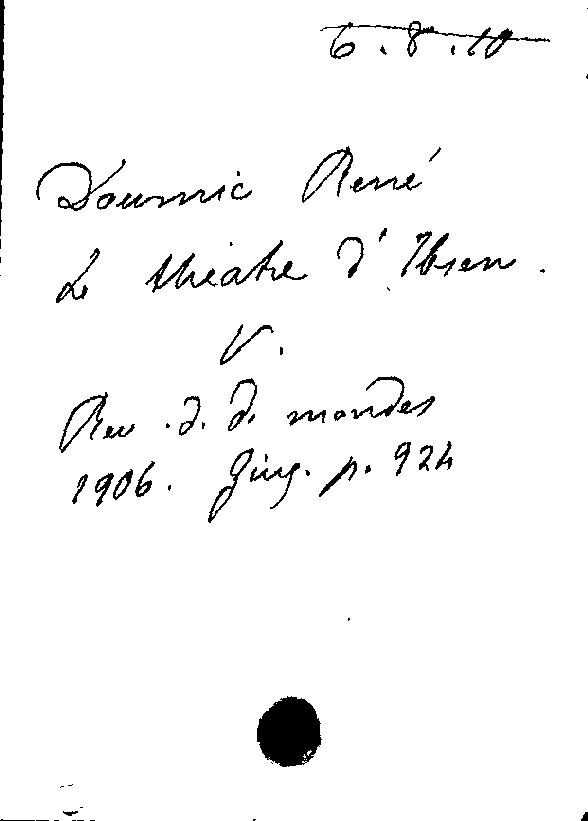 6.8.10
Doumic René
Le théatre d'Ibsen.
V.
Rev. d. d. mondes
1906. Giug. p. 924